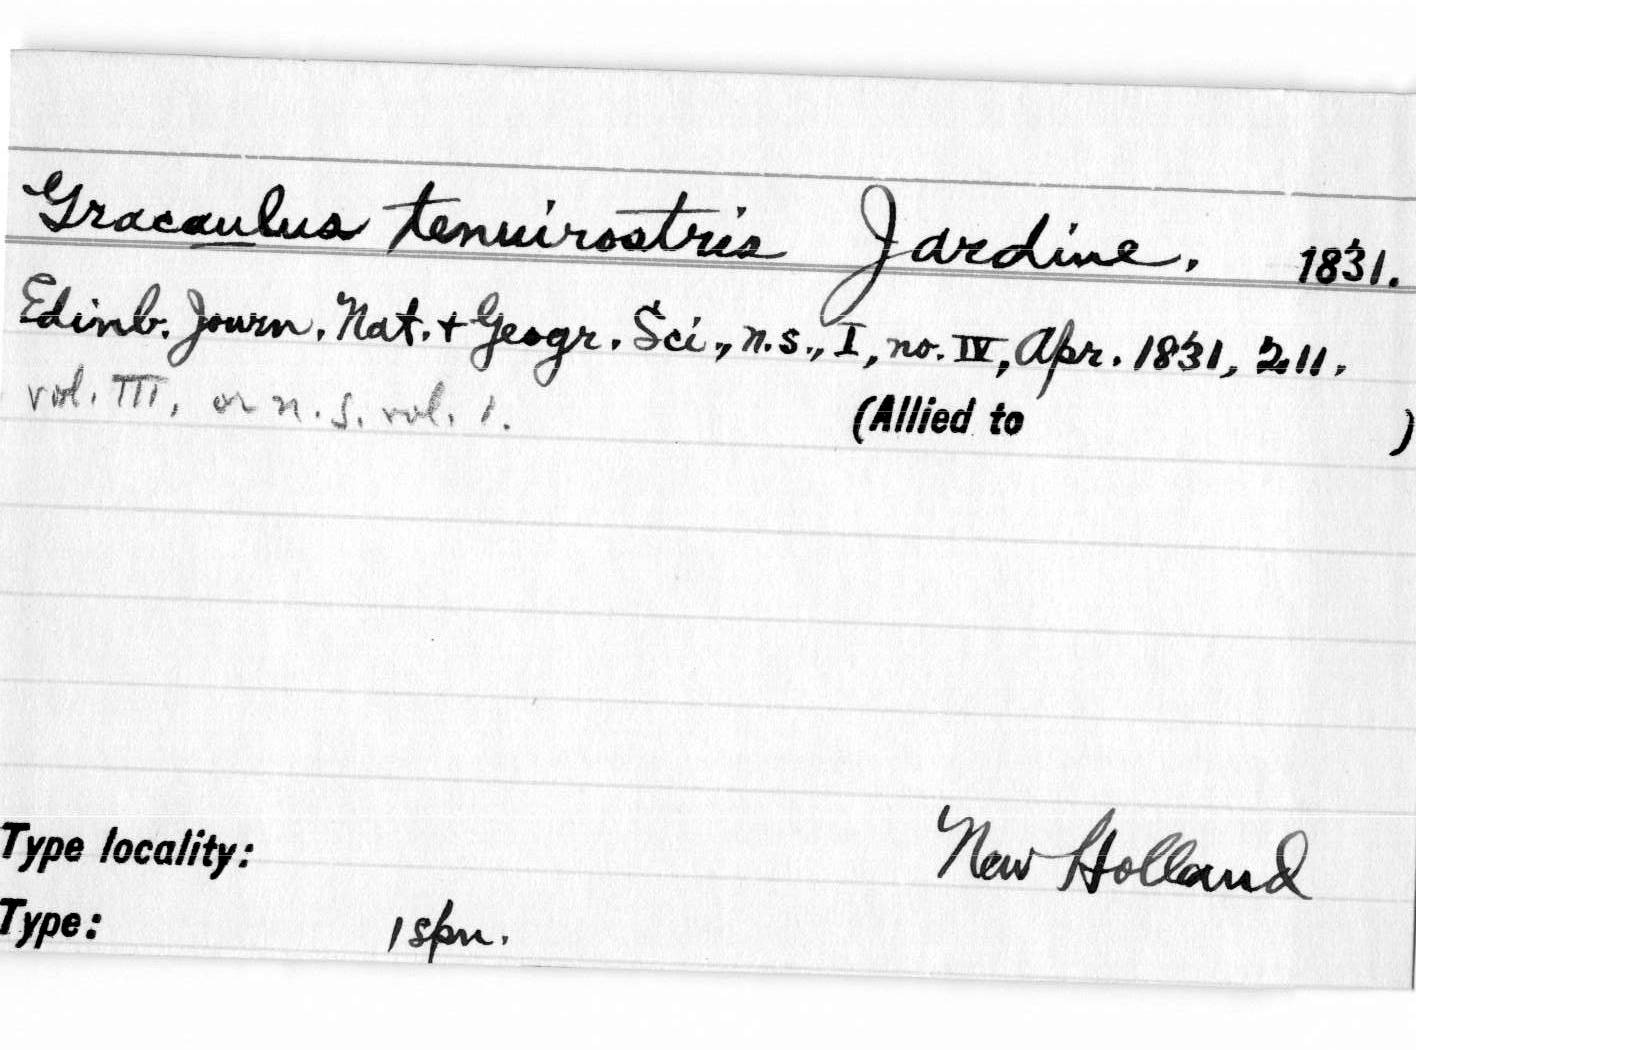 Gracaulus tenuirostris Jardine. 1831.
Edinb. Journ. Nat. + Geogr. Sci., n.s., I, no. IV, Apr. 1831, 211.
vol. III, or n.s. vol. 1.
(Allied to )
Type locality: New Holland
Type: 1 spn.